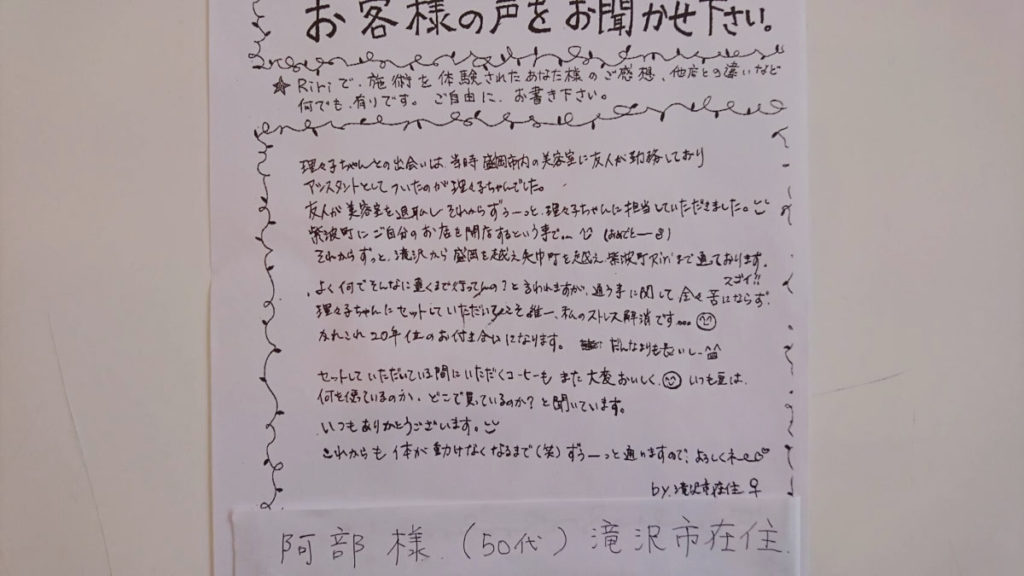 お客様の声をお聞かせ下さい。
★Ririで、施術を体験されたあなた様のご感想、他店との違いなど
何でも、有りです。ご自由に、お書き下さい。
理々子ちゃんとの出会いは、当時盛岡市内の美容室に友人が勤務しており
アシスタントとしてついたのが理々子ちゃんでした。
友人が美容室を退職し それからずぅーっと、理々子ちゃんに担当していただきました。
紫波町にご自分のお店を開店するという事で… (おめでとー)
それからずっと、滝沢から盛岡を越え矢巾町を越え紫波町Ririまで通っております。
スゴイ!!
よく何でそんなに遠くまで行ってんの?と言われますが、通う事に関して全々苦にならず!
理々子ちゃんにセットしていただいて 唯一、私のストレス解消です…
かれこれ20年位のお付き合いになります。 だんなよりも長いし
セットしていただいている間にいただくコーヒーも また大変おいしく、いつも豆は、
何を使ているのか、どこで買ているのか?と聞いています。
いつもありがとうございます。
これからも 体が動けなくなるまで(笑)ずぅーっと通いますので、よろしくネ
by.滝沢市在住♀
阿部様(50代)滝沢市在住